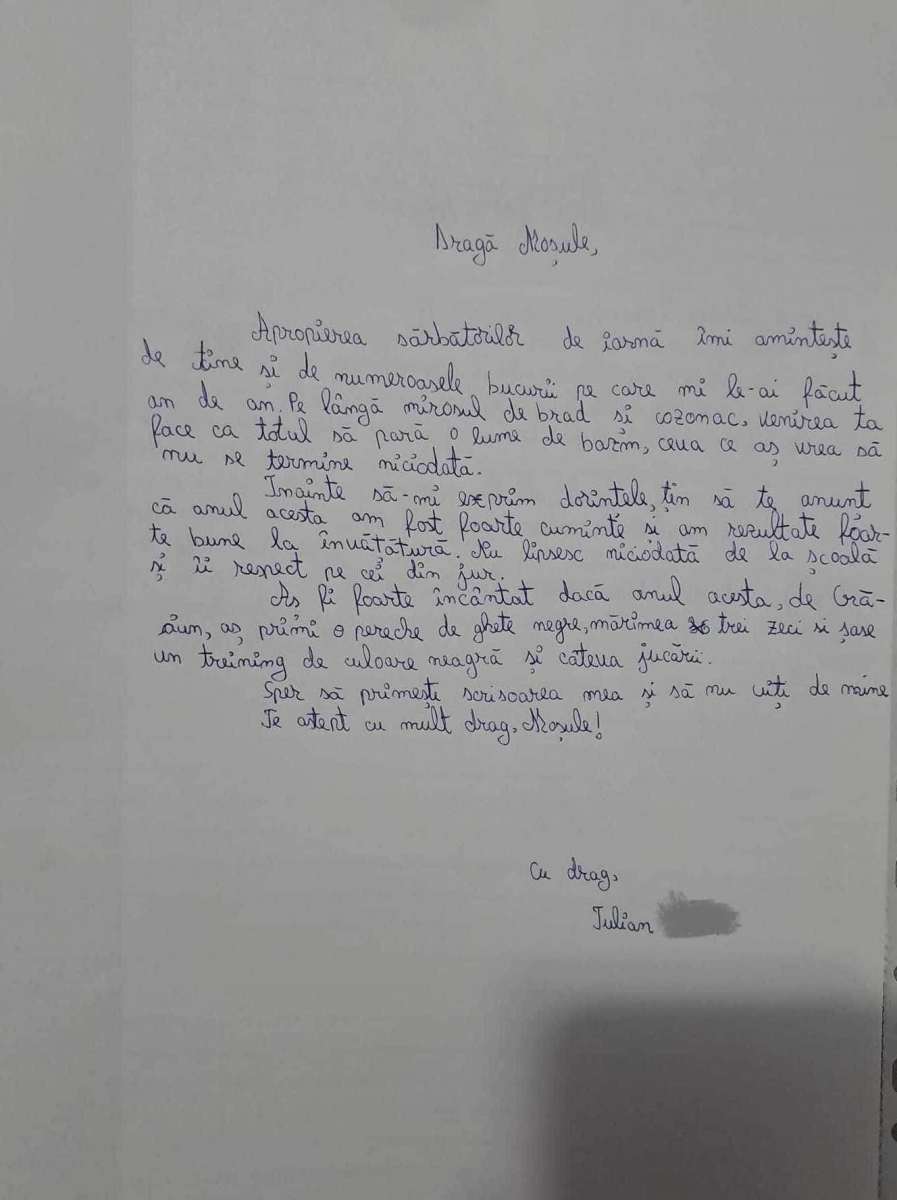 Dragă Moșule,
Apropierea sărbătorilor de iarnă îmi amintește
de tine și de numeroasele bucurii pe care mi le-ai făcut
an de an. Pe lângă mirosul de brad si cozonac, venirea ta
face ca totul să pară o lume de basm, ceva ce aș vrea să
nu se termine niciodată.
Inainte să-mi exprim dorintele, țin să te anunt
că anul acesta am fost foarte cuminte si am rezultate foar-
te bune la învătătură. Nu lipsesc niciodată de la școală
și îi respect pe cei din jur.
As fi foarte încântat dacă anul acesta, de Cră-
ciun, aș primi o pereche de ghete negre, mărimea trei zeci si șase
un treining de culoare neagră și câteva jucării.
Sper să primești scrisoarea mea și să nu uiți de mine
Te astept cu mult drag, Moșule!
Cu drag,
Iulian